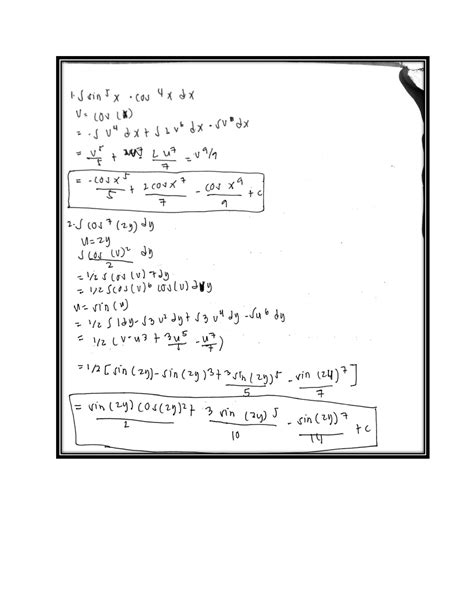 1. ∫ sin⁵x · cos⁴x dx
v = cos (x)
= -∫ v⁴ dx + ∫ 2v⁶ dx - ∫v⁸ dx
= v⁵/5 + 2u⁷/7 = v⁹/9
= -cosx⁵/5 + 2cosx⁷/7 - cos x⁹/9 + c
2. ∫ cos⁷ (2y) dy
u = 2y
∫ cos (v)²/2 dy
= 1/2 ∫ cos (v) 7 dy
= 1/2 ∫ cos (v)⁶ cos (v) dy
u = sin (u)
= 1/2 ∫ 1dy - ∫3 v² dy + ∫3 v⁴ dy - ∫u⁶ dy
= 1/2 (v - u3 + 3u⁵/5 - u⁷/7)
= 1/2 [sin (2y) - sin (2y) 3 + 3 sin (2y)⁵/5 - sin (2y)⁷/7]
= sin (2y) cos (2y)²/2 + 3 sin (2y)⁵/10 - sin (2y)⁷/14 + c